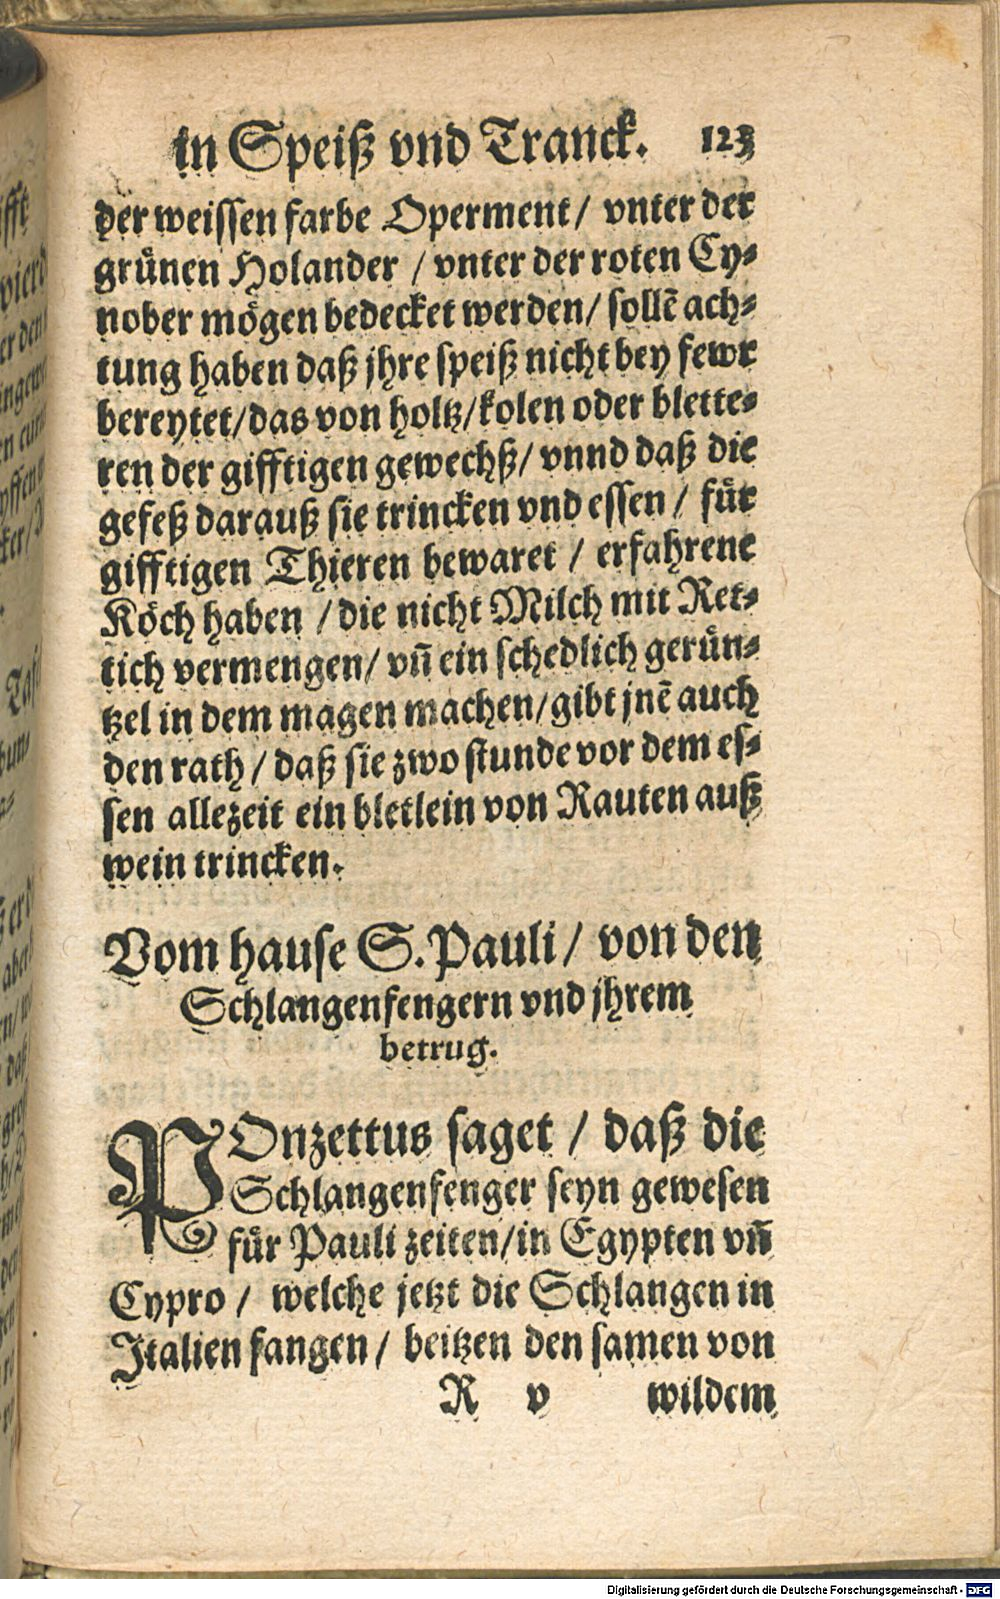 in Speiß vnd Tranck. 123
der weissen farbe Operment/ vnter der
gruͤnen Holander / vnter der roten Cy⸗
nober moͤgen bedecket werden/ sollẽ ach⸗
tung haben daß jhre speiß nicht bey fewr
bereytet/das von holtz/kolen oder blette⸗
ren der gifftigen gewechß/ vnnd daß die
gefeß darauß sie trincken vnd essen / fuͤr
gifftigen Thieren bewaret / erfahrene
Koͤch haben / die nicht Milch mit Ret⸗
tich vermengen/ vñ ein schedlich geruͤn⸗
tzel in dem magen machen/gibt jnẽ auch
den rath / daß sie zwo stunde vor dem es⸗
sen allezeit ein bletlein von Rauten auß
wein trincken.
Vom hause S. Pauli/ von den
Schlangenfengern vnd jhrem
betrug.
POnzettus saget / daß die
Schlangenfenger seyn gewesen
fuͤr Pauli zeiten/in Egypten vñ
Cypro / welche jetzt die Schlangen in
Italien fangen/ beitzen den samen von
R v wildem
Digitalisierung gefördert durch die Deutsche Forschungsgemeinschaft - DFG